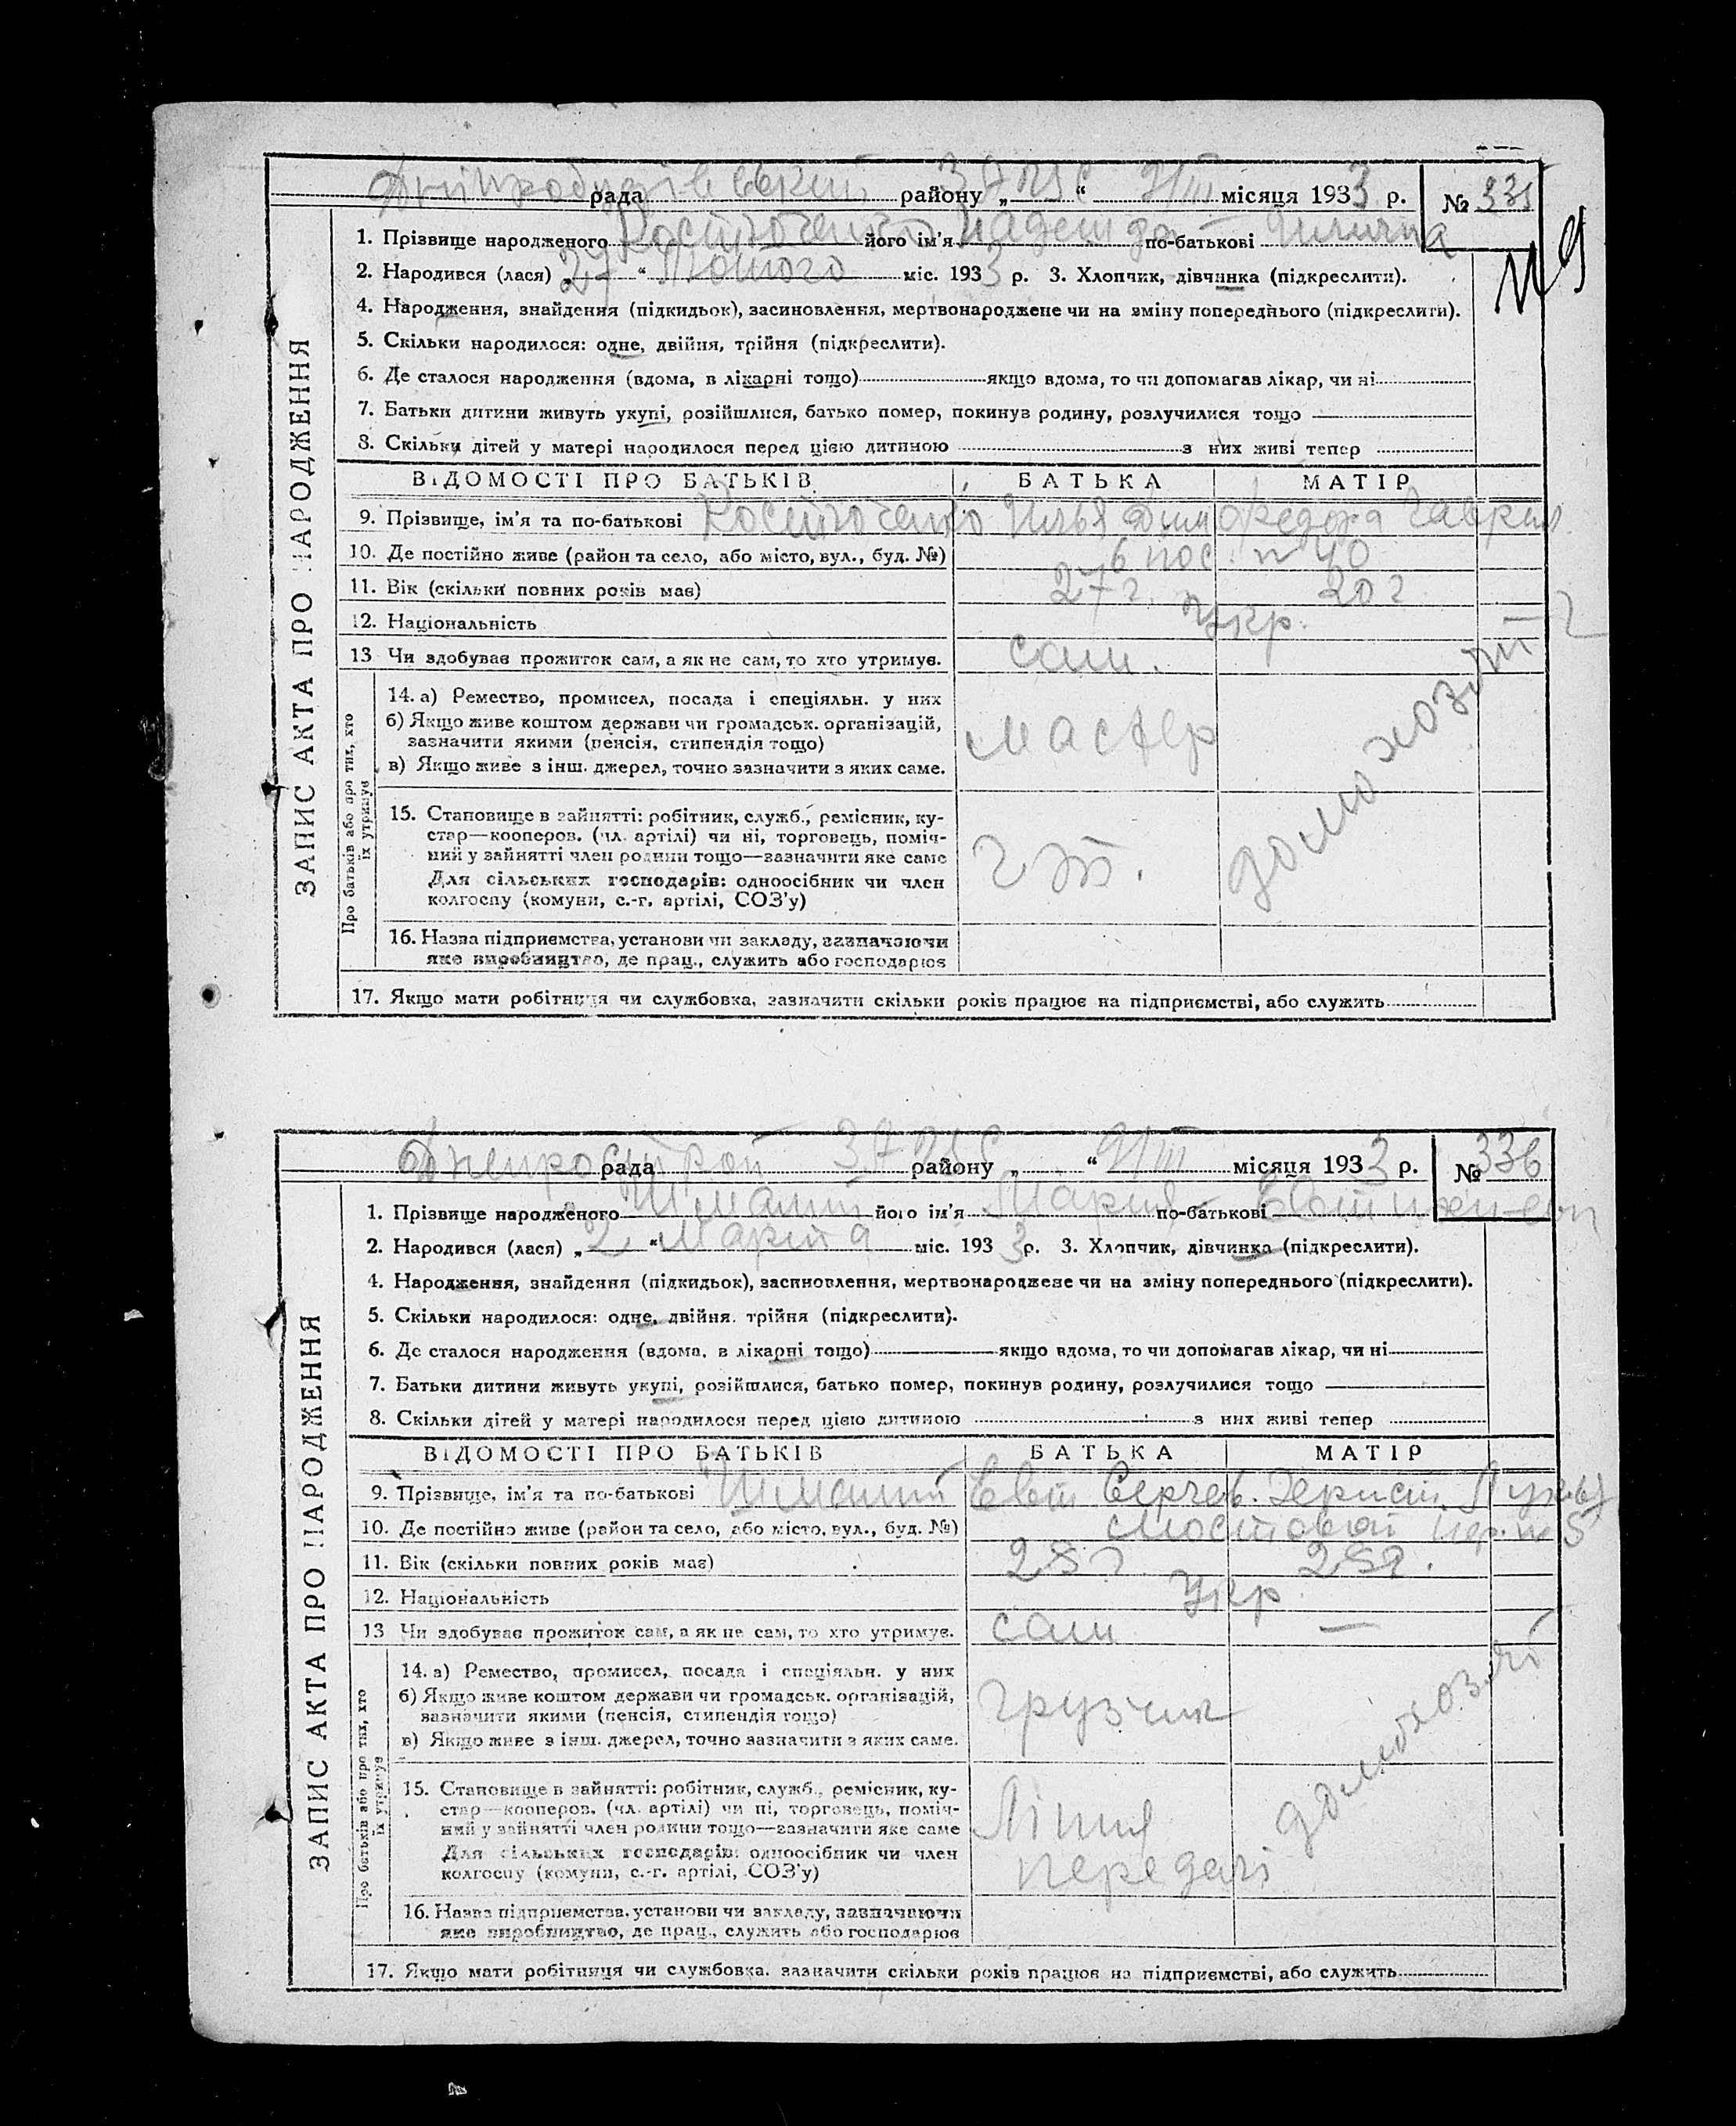 рада району „ “ 9/III місяця 1933 р. № 335
1. Прізвище народженого Костюченко його ім'я Надежда по-батькові
2. Народився (лася) „27“ Лютого міс. 1933 р. 3. Хлопчик, дівчинка (підкреслити).
4. Народження, знайдення (підкидьок), засиновлення, мертвонароджене чи на зміну попереднього (підкреслити).
5. Скільки народилося: одне, двійня, трійня (підкреслити).
6. Де сталося народження (вдома, в лікарні тощо) якщо вдома, то чи допомагав лікар, чи ні
7. Батьки дитини живуть укупі, розійшлися, батько помер, покинув родину, розлучилися тощо
8. Скільки дітей у матері народилося перед цією дитиною з них живі тепер
ЗАПИС АКТА ПРО НАРОДЖЕННЯ
ВІДОМОСТІ ПРО БАТЬКІВ БАТЬКА МАТІР
9. Прізвище, ім'я та по-батькові Костюченко Илья Дим Федора Гаврил
10. Де постійно живе (район та село, або місто, вул., буд. №) 6 пос. n 40
11. Вік (скільки повних років має) 27 г. 20 г
12. Національність Укр.
13 Чи здобував прожиток сам, а як не сам, то хто утримує. сам.
Про батьків або про тих, хто їх утримує
14. а) Ремество, промисел, посада і спеціяльн. у них
б) Якщо живе коштом держави чи громадськ. організацій,
зазначити якими (пенсія, стипендія тощо)
в) Якщо живе з інш. джерел, точно зазначити з яких саме.
мастер
15. Становище в зайнятті: робітник, служб., ремісник, ку-
стар—кооперов. (чл. артілі) чи ні, торговець, поміч-
ний у зайнятті член родини тощо—зазначити яке саме
Для сільських господарів: одноосібник чи член
колгоспу (комуни, с.-г. артілі, СОЗ'у)
16. Назва підприємства, установи чи закладу, зазначаючи
яке виробництво, де прац., служить або господарює
17. Якщо мати робітниця чи службовка, зазначити скільки років працює на підприємстві, або служить
Днепрострой рада району „ “ 9/III місяця 1933 р. № 336
1. Прізвище народженого його ім'я Мария по-батькові
2. Народився (лася) „2“ Марта міс. 1933 р. 3. Хлопчик, дівчинка (підкреслити).
4. Народження, знайдення (підкидьок), засиновлення, мертвонароджене чи на зміну попереднього (підкреслити).
5. Скільки народилося: одне, двійня, трійня (підкреслити).
6. Де сталося народження (вдома, в лікарні тощо) якщо вдома, то чи допомагав лікар, чи ні
7. Батьки дитини живуть укупі, розійшлися, батько помер, покинув родину, розлучилися тощо
8. Скільки дітей у матері народилося перед цією дитиною з них живі тепер
ЗАПИС АКТА ПРО НАРОДЖЕННЯ
ВІДОМОСТІ ПРО БАТЬКІВ БАТЬКА МАТІР
9. Прізвище, ім'я та по-батькові
10. Де постійно живе (район та село, або місто, вул., буд. №) Мостовой
11. Вік (скільки повних років має)
12. Національність Укр
13 Чи здобував прожиток сам, а як не сам, то хто утримує. сам —
Про батьків або про тих, хто їх утримує
14. а) Ремество, промисел, посада і спеціяльн. у них
б) Якщо живе коштом держави чи громадськ. організацій,
зазначити якими (пенсія, стипендія тощо)
в) Якщо живе з інш. джерел, точно зазначити з яких саме.
грузчик
15. Становище в зайнятті: робітник, служб., ремісник, ку-
стар—кооперов. (чл. артілі) чи ні, торговець, поміч-
ний у зайнятті член родини тощо—зазначити яке саме
Для сільських господарів: одноосібник чи член
колгоспу (комуни, с.-г. артілі, СОЗ'у)
Лінія
передачі
16. Назва підприємства, установи чи закладу, зазначаючи
яке виробництво, де прац., служить або господарює
17. Якщо мати робітниця чи службовка, зазначити скільки років працює на підприємстві, або служить